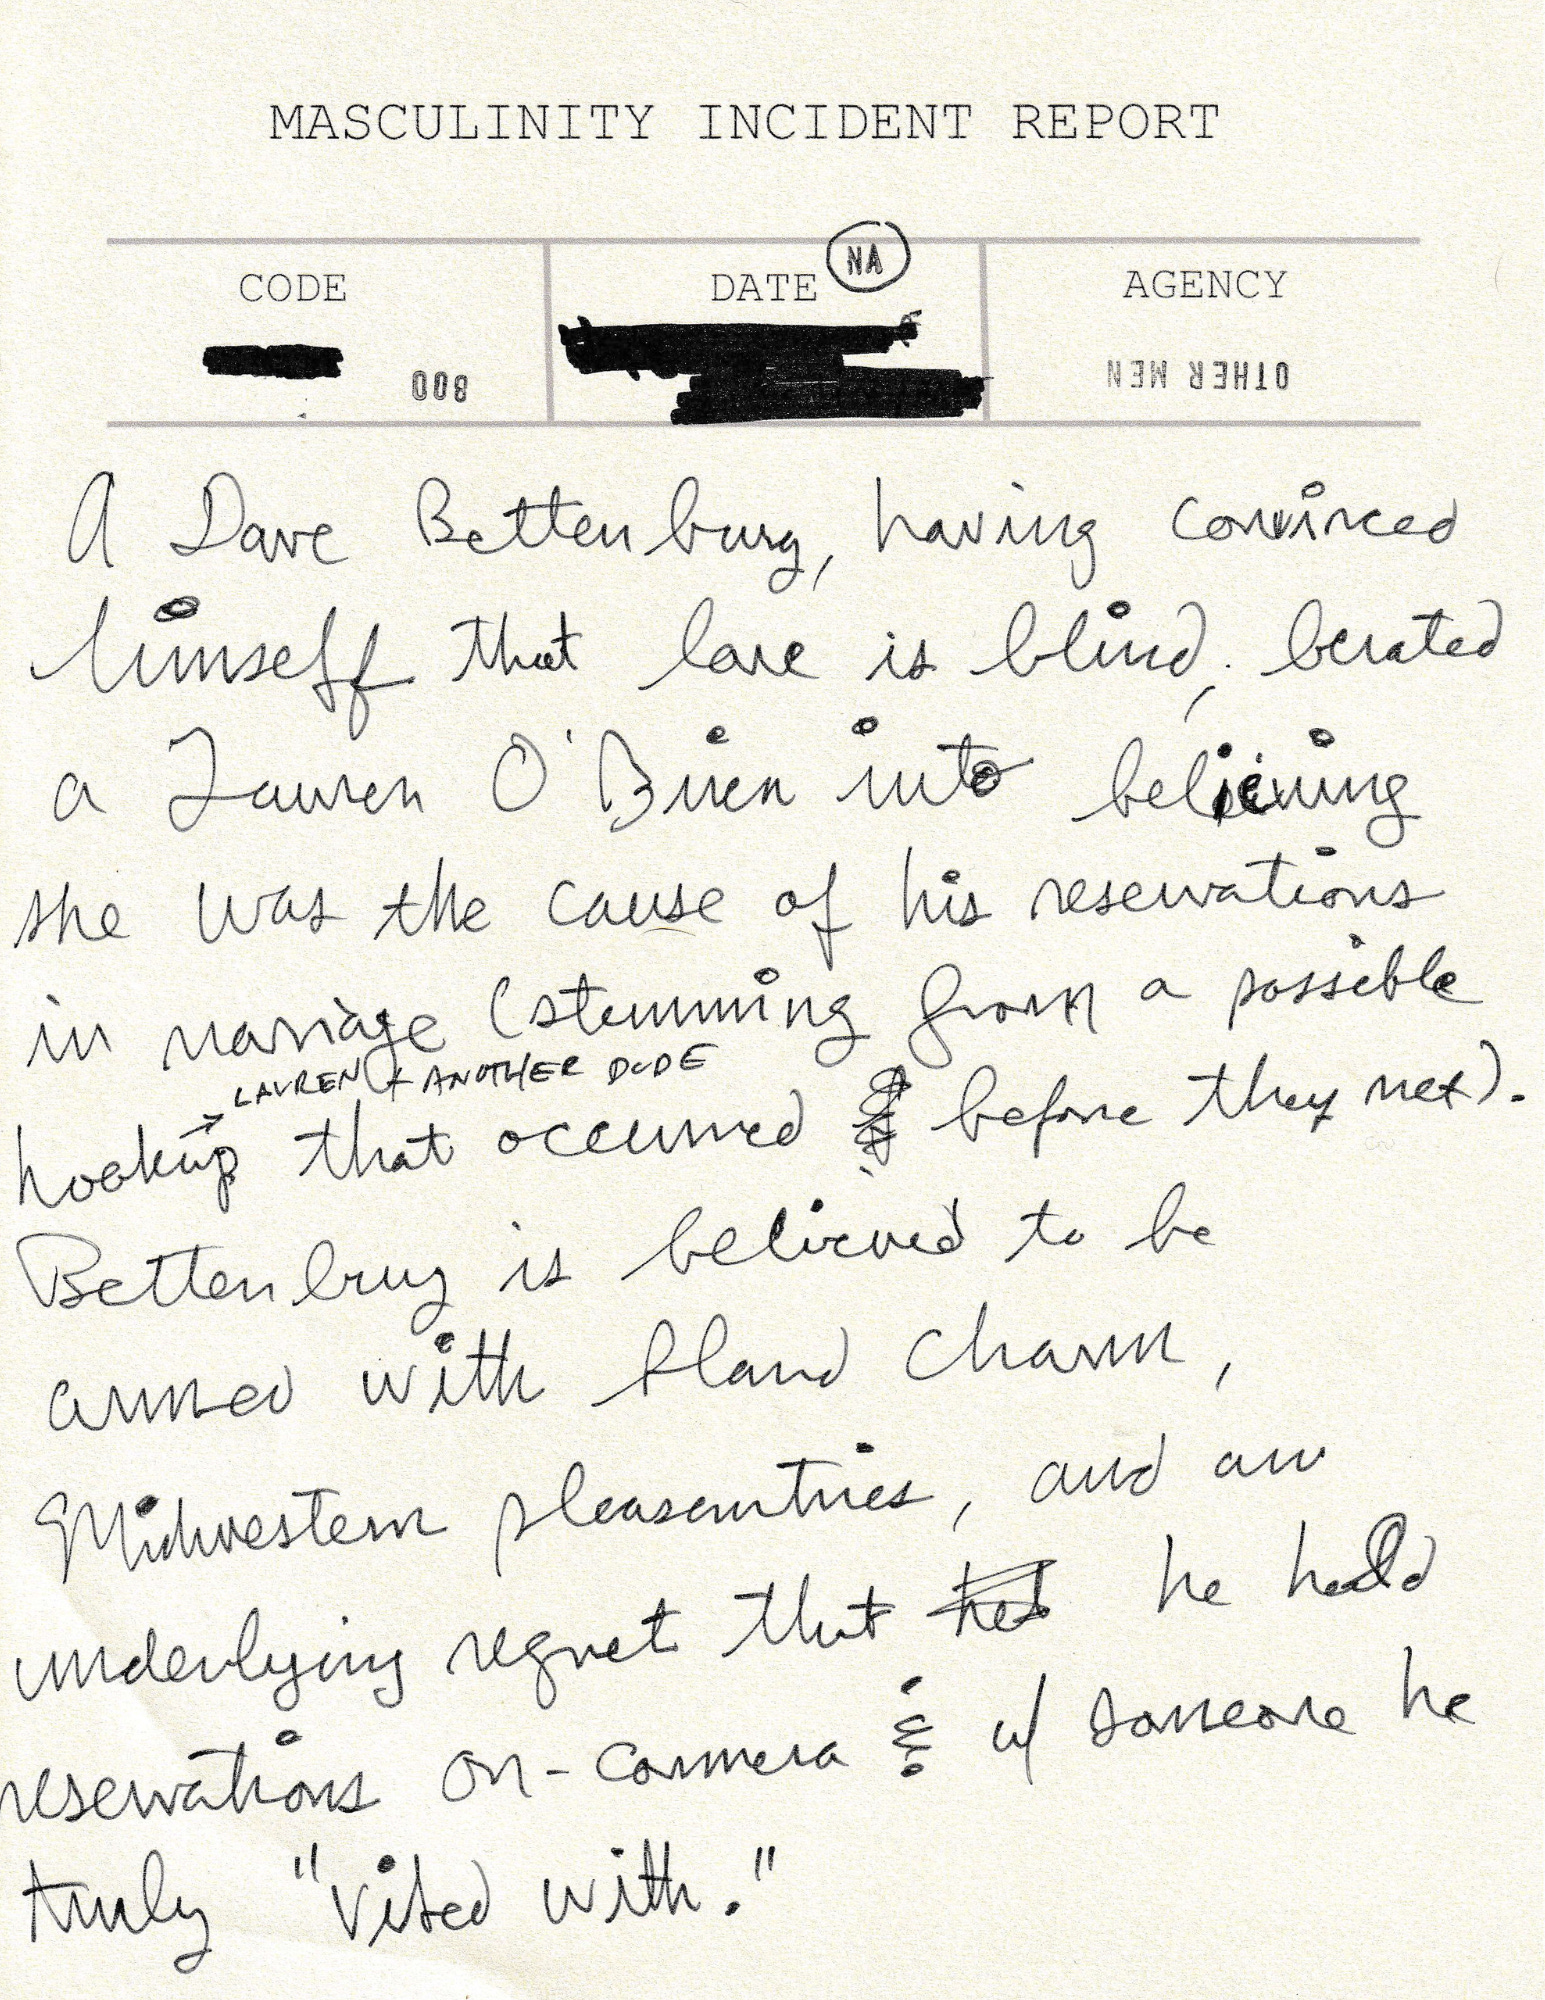 MASCULINITY INCIDENT REPORT
CODE DATE NA AGENCY
008 OTHER MEN
A Dave Bettenburg, having convinced
himself that love is blind, berated
a Lauren O'Brien into believing
she was the cause of his reservations
in marriage (stemming from a possible
LAUREN + ANOTHER DUDE
hookup that occurred before they met).
Bettenburg is believed to be
armed with bland charm,
Midwestern pleasantries, and an
underlying regret that he held
reservations on-camera & w/ someone he
truly "vibed with."